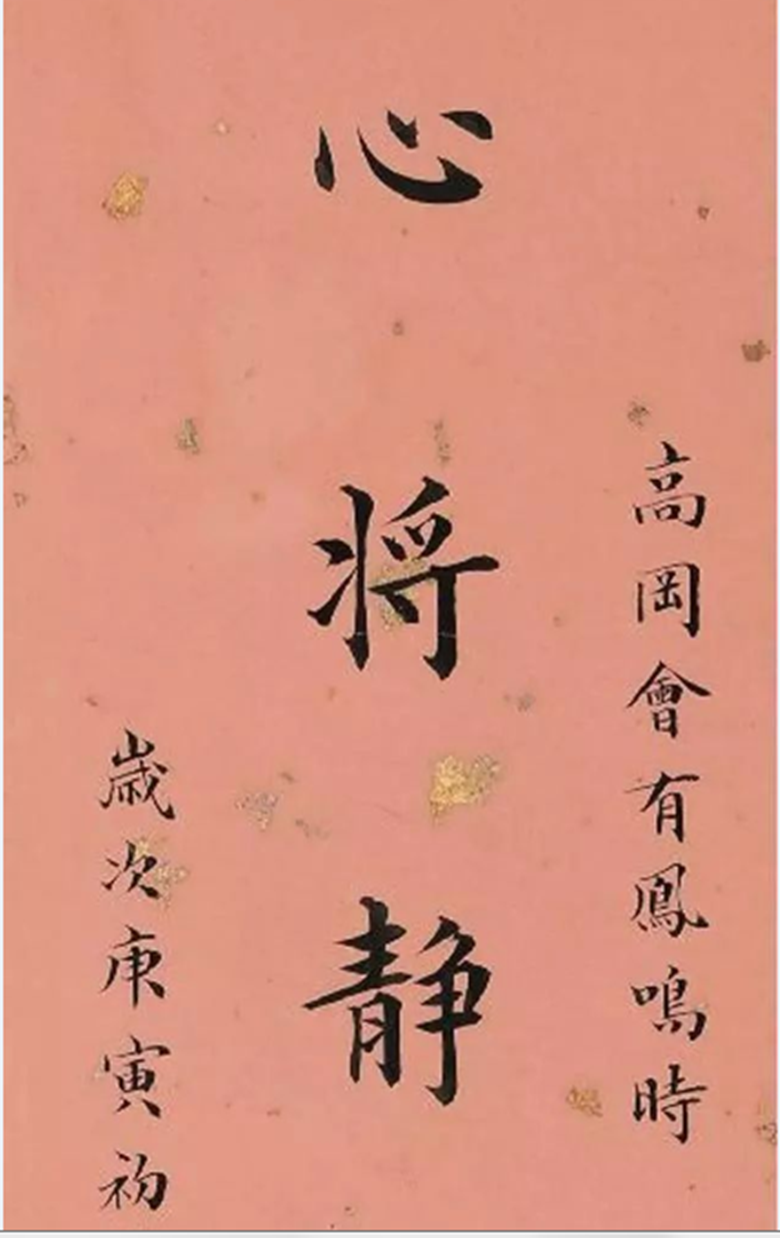 高岡會有鳳鳴時
心将静
歳次庚寅初